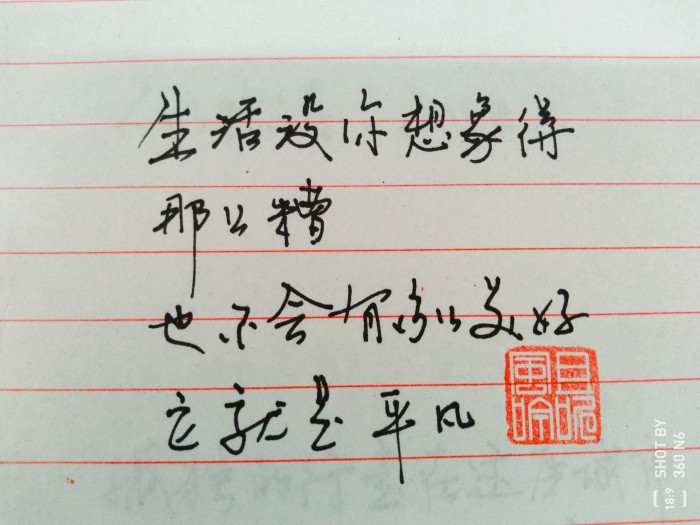 生活没你想象得
那么糟
也不会有那么美好
它就是平凡
SHOT BY
360 N6
18:9